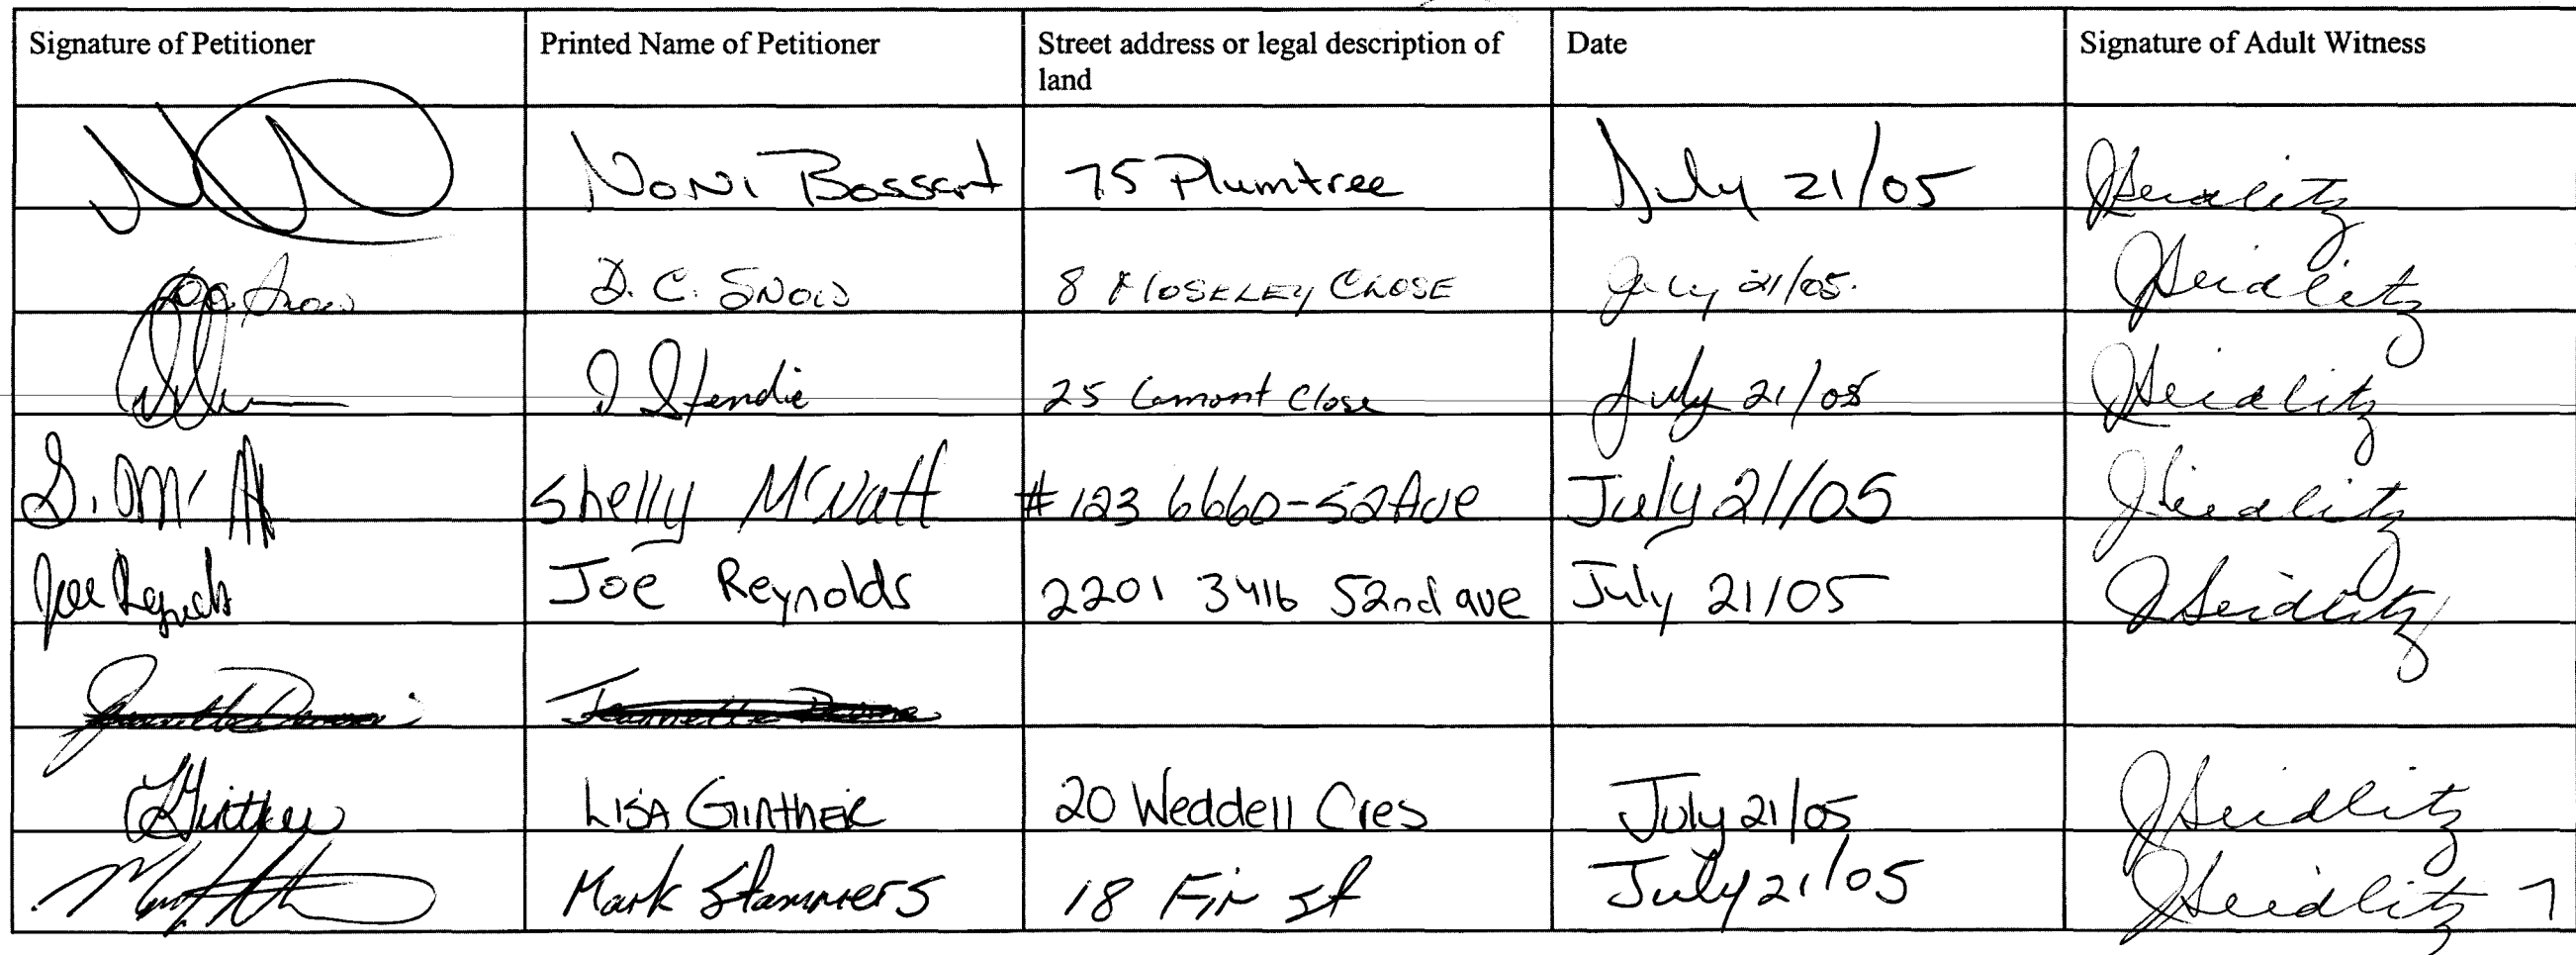 Signature of Petitioner Printed Name of Petitioner Street address or legal description of land Date Signature of Adult Witness
Noni Bossert 75 Plumtree July 21/05 JSeidlitz
D. C. SNOW 8 MOSELEY CLOSE July 21/05. JSeidlitz
Stendie 25 Lamont Close July 21/05 JSeidlitz
S. Mc Shelly McNatt #123 6660-52 Ave July 21/05 JSeidlitz
Joe Reynolds Joe Reynolds 2201 3416 52nd ave July 21/05 JSeidlitz
Jeannette
LGinther LISA GINTHER 20 Weddell Cres July 21/05 JSeidlitz
Mark Stammers 18 Fir st July 21/05 JSeidlitz 7